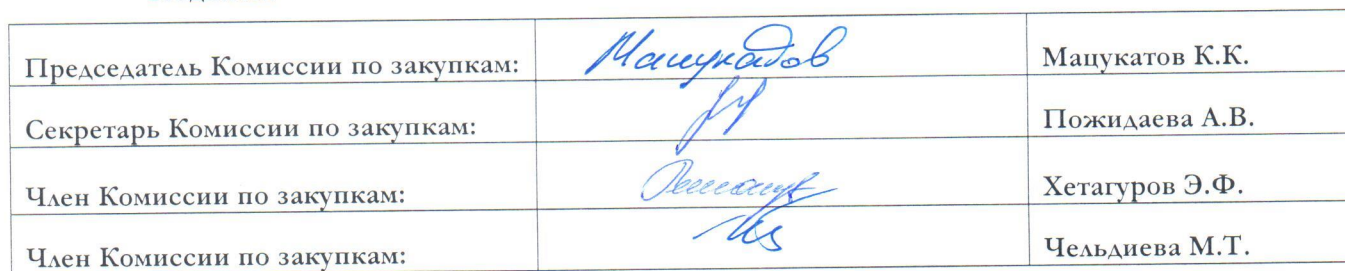 Председатель Комиссии по закупкам: Мацукатов К.К.
Секретарь Комиссии по закупкам: Пожидаева А.В.
Член Комиссии по закупкам: Хетагуров Э.Ф.
Член Комиссии по закупкам: Чельдиева М.Т.